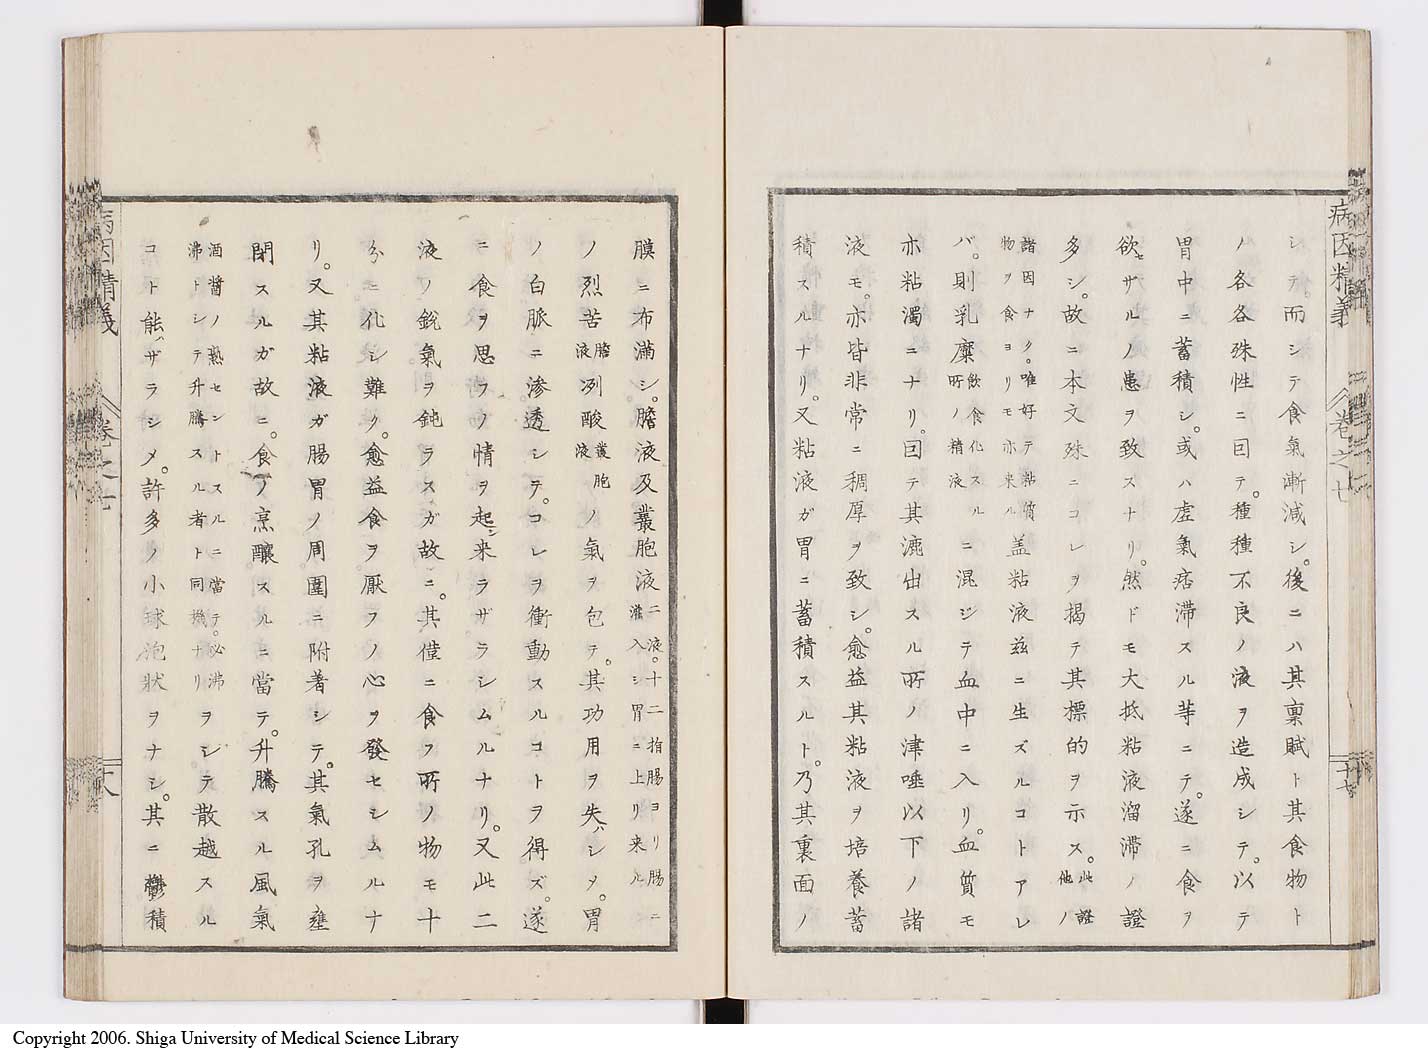 病因精義
巻之七
十七
シテ。而シテ食氣漸減シ。後ニハ其稟賦ト其食物ト
ノ各各殊性ニ因テ。種種不良ノ液ヲ造成シテ。以テ
胃中ニ蓄積シ。或ハ虚氣痞滞スル等ニテ。遂ニ食ヲ
欲セザルノ患ヲ致スナリ。然ドモ大抵粘液溜滞ノ證
多シ。故ニ本文殊ニコレヲ掲テ其標的ヲ示ス。此證ノ他
諸因ナク。唯好テ粘質物ヲ食ヨリモ亦来ル蓋粘液茲ニ生ズルコトアレ
バ。則乳糜飲食化スル所ノ精液ニ混ジテ血中ニ入リ。血質モ
亦粘濁ニナリ。因テ其漉出スル所ノ津唾以下ノ諸
液モ。亦皆非常ニ稠厚ヲ致シ。愈益其粘液ヲ培養蓄
積スルナリ。又粘液ガ胃ニ蓄積スルト。乃其裏面ノ
膜ニ布満シ。膽液及叢胞液二液。十二指腸ヨリ腸ニ灌入シ胃ニ上リ来ル
ノ烈苦膽液冽酸叢胞液ノ氣ヲ包テ。其功用ヲ失ハシメ。胃
ノ白脈ニ滲透シテ。コレヲ衝動スルコトヲ得ズ。遂
ニ食ヲ思フノ情ヲ起シ来ラザラシムルナリ。又此二
液ノ鋭氣ヲ鈍ラスガ故ニ。其僅ニ食フ所ノ物モ十
分ニ化シ難ク。愈益食ヲ厭フノ心ヲ發セシムルナ
リ。又其粘液ガ腸胃ノ周圍ニ附著シテ。其氣孔ヲ壅
閉スルガ故ニ。食ノ烹釀スルニ當テ。升騰スル風氣
酒醬ノ熟セントスルニ當テ。必沸沸トシテ升騰スル者ト同機ナリヲシテ散越スル
コト能ハザラシメ。許多ノ小球泡状ヲナシ。其ニ鬱積
病因精義
巻之七
十八
Copyright 2006. Shiga University of Medical Science Library